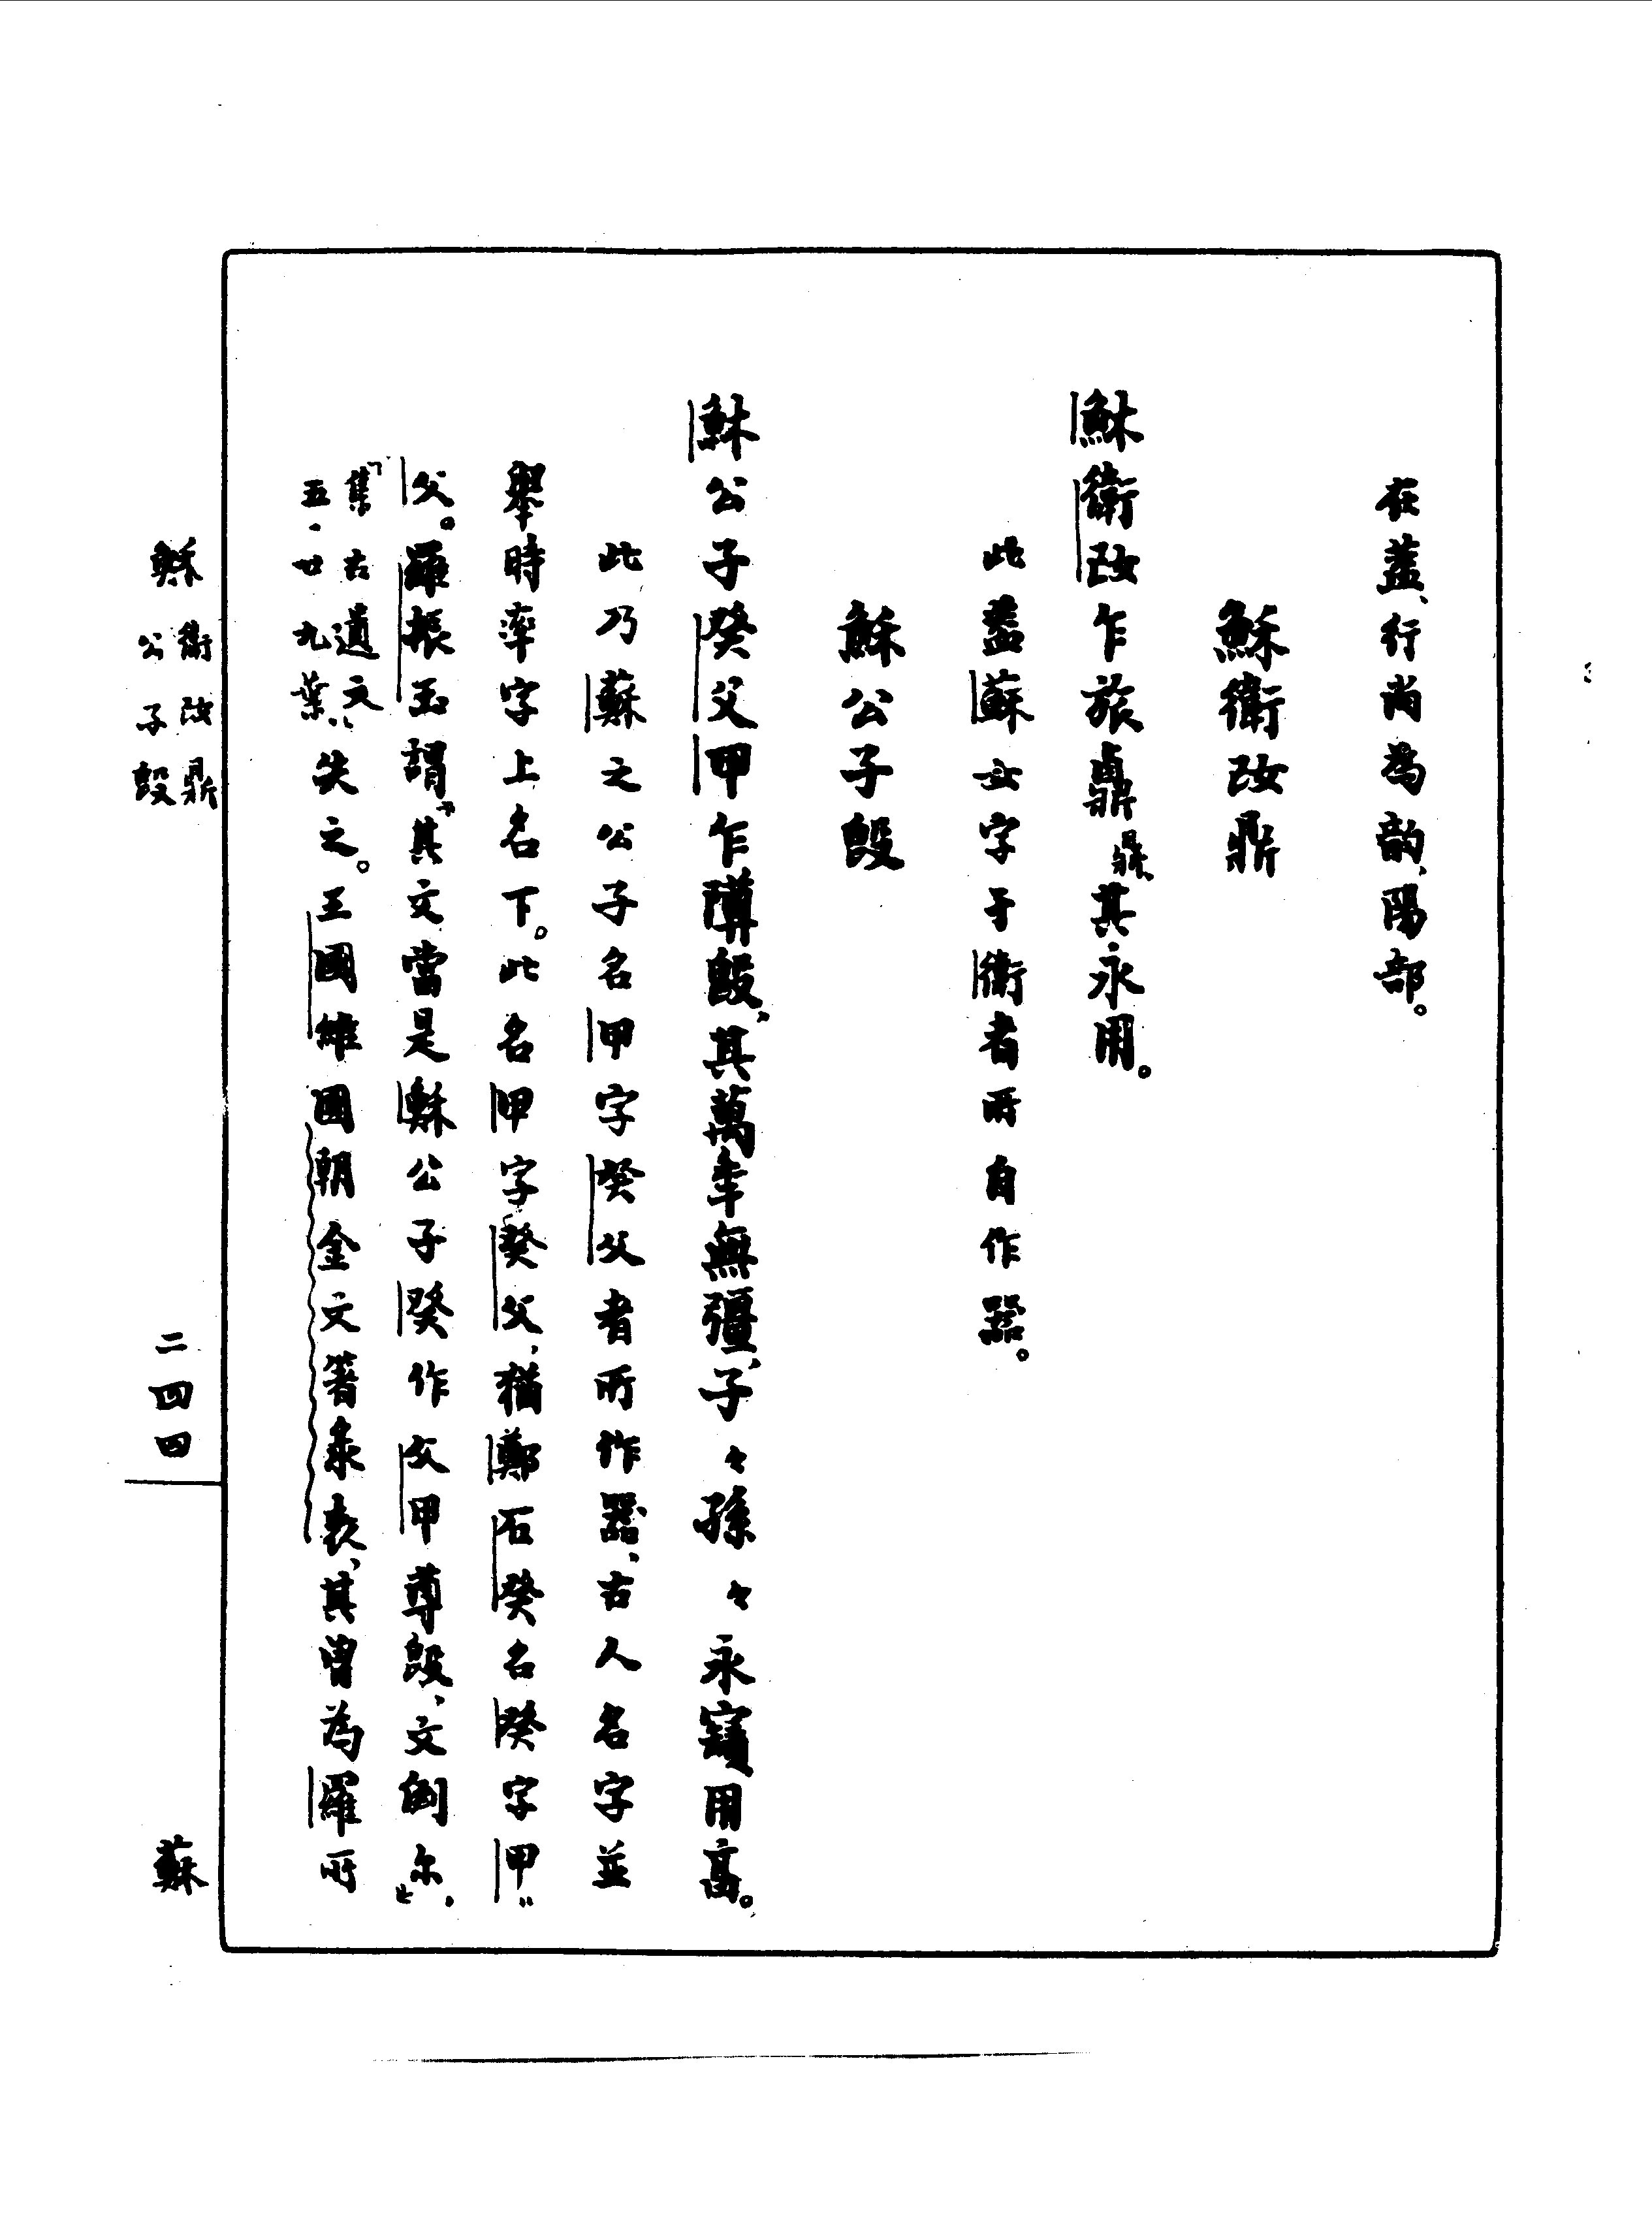 在蓋、行尚為韵、陽部。
穌衛改鼎
穌衛改乍旅鼑鼎、其永用。
此蓋蘇女字于衛者所自作器。
穌公子𣪘
穌公子癸父甲乍𨺅𣪘、其萬年無彊、子〻孫〻永寶用亯。
此乃蘇之公子名甲字癸父者所作器、古人名字並
舉時率字上名下。此名甲字癸父、猶鄭石癸名癸字甲
父。羅振玉謂「其文當是穌公子癸作父甲尊𣪘、文倒尔」、
「集古遺文
五·廿九葉、
失之。王國維國朝金文著彔表、其曾為羅所
穌
衛改鼎
公子𣪘
二四四
蘇